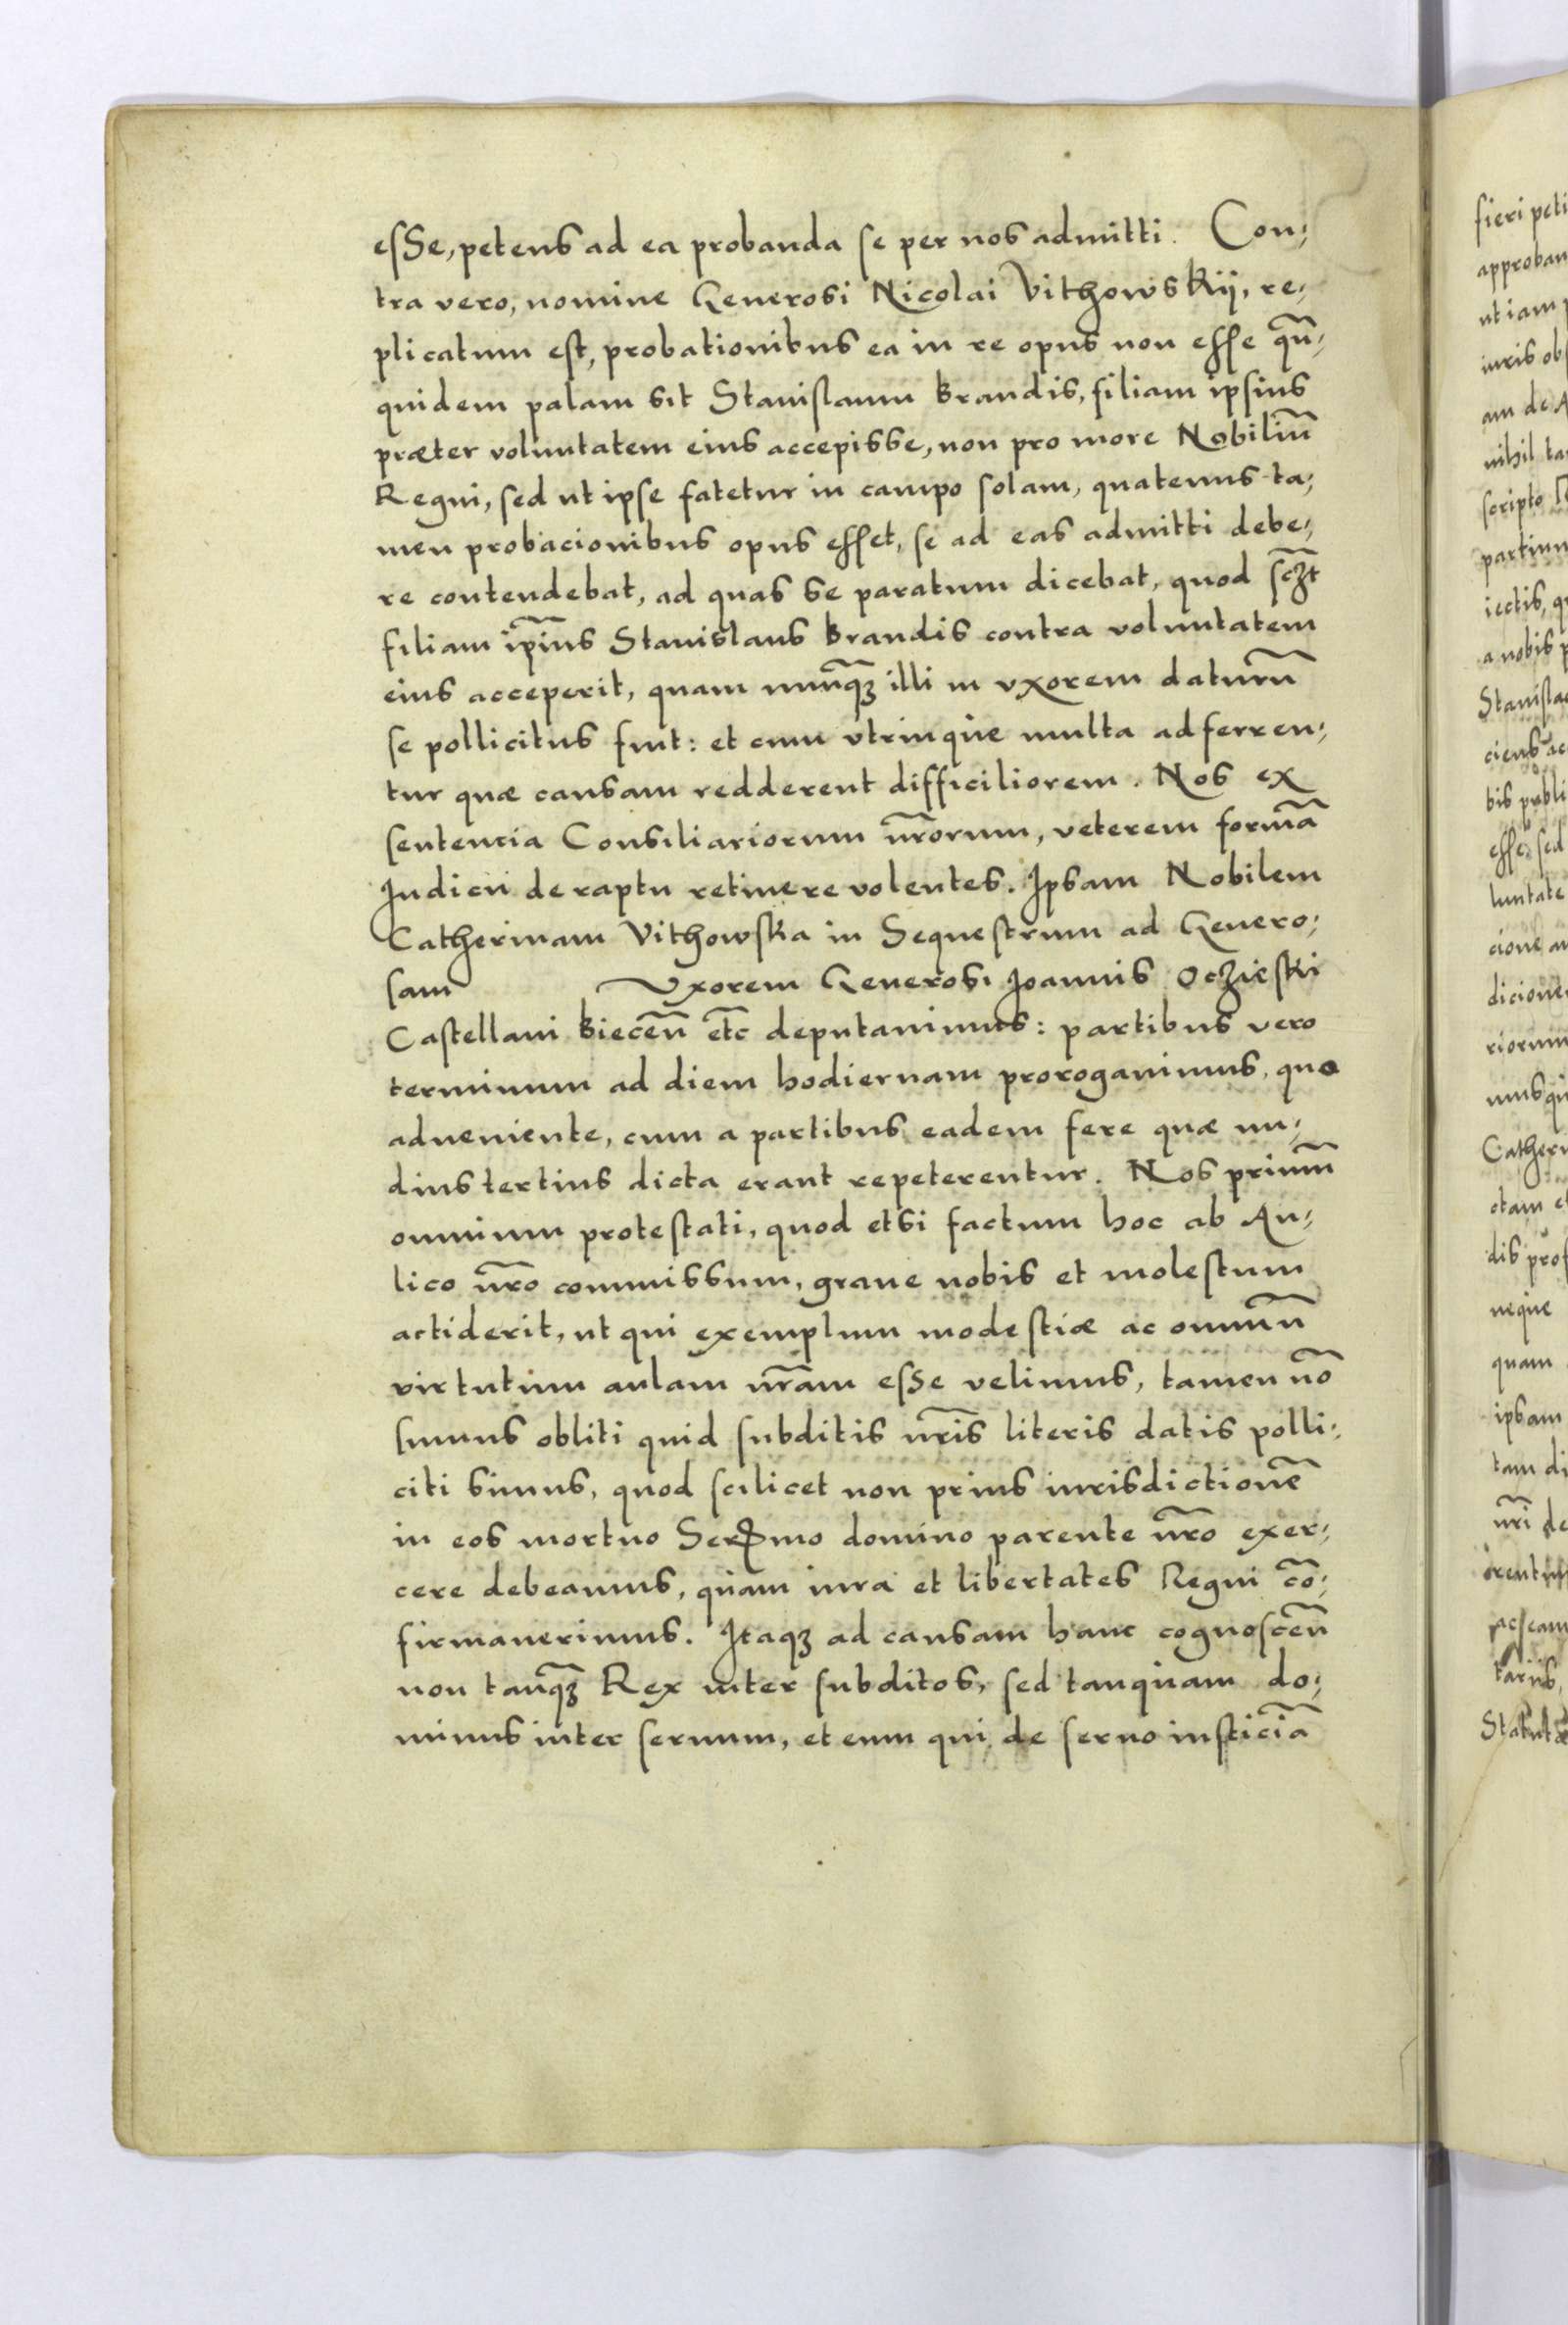 esse, petens ad ea probanda se per nos admitti. Con;
tra vero, nomine Generosi Nicolai Vithowskij, re;
plicatum est, probationibus ea in re opus non esse qñ;
quidem palam sit Stanislaum Brandis, filiam ipsius
præter voluntatem eius accepisse, non pro more Nobiliũ
Regni, sed ut ipse fatetur in campo solam, quatenus ta;
men probacionibus opus esset, se ad eas admitti debe;
re contendebat, ad quas se paratum dicebat, quod scꝫt
filiam ip̃ius Stanislaus Brandis contra voluntatem
eius acceperit, quam nunq̃ꝫ illi in vxorem daturũ
se pollicitus fuit: et cum vtrinque multa adferren;
tur quæ causam redderent difficiliorem. Nos ex
sentencia Consiliariorum nr̃orum, veterem formã
Iudicii de raptu retinere volentes. Ipsam Nobilem
Catherinam Vithowska in Sequestrum ad Genero;
sam Vxorem Generosi Ioannis Oczieski
Castellani Biecen̄ etc̃ deputauimus: partibus vero
terminum ad diem hodiernam prorogauimus, quo
adueniente, cum a partibus eadem fere quæ nu;
dius tertius dicta erant repeterentur. Nos primũ
omnium protestati, quod etsi factum hoc ab Au;
lico nr̃o commissum, graue nobis et molestum
actiderit, ut qui exemplum modestiæ ac omniũ
virtutum aulam nr̃am esse velimus, tamen nõ
sumus obliti quid subditis nr̃is literis datis polli;
citi simus, quod scilicet non prius iurisdictionẽ
in eos mortuo Serᵐᵒ domino parente nr̃o exer;
cere debeamus, quam iura et libertates Regni cõ;
firmauerimus. Itaqꝫ ad causam hanc cognoscen̄
non tanq̃ꝫ Rex inter subditos, sed tanquam do;
minus inter seruum, et eum qui de seruo iusticiã
fieri peti
approban
ut iam
iuris ob
am de A
nihil ta
scripto
partium
iectis, q
a nobis p
Stanisla
ciens ac
bis publi
esse, sed
luntate
cione
dicione
riorum
mus qu
Catheri
ctam e
dis prof
neque
quam
ipsam
tam di
nr̃i de
tariis,
Statutæ